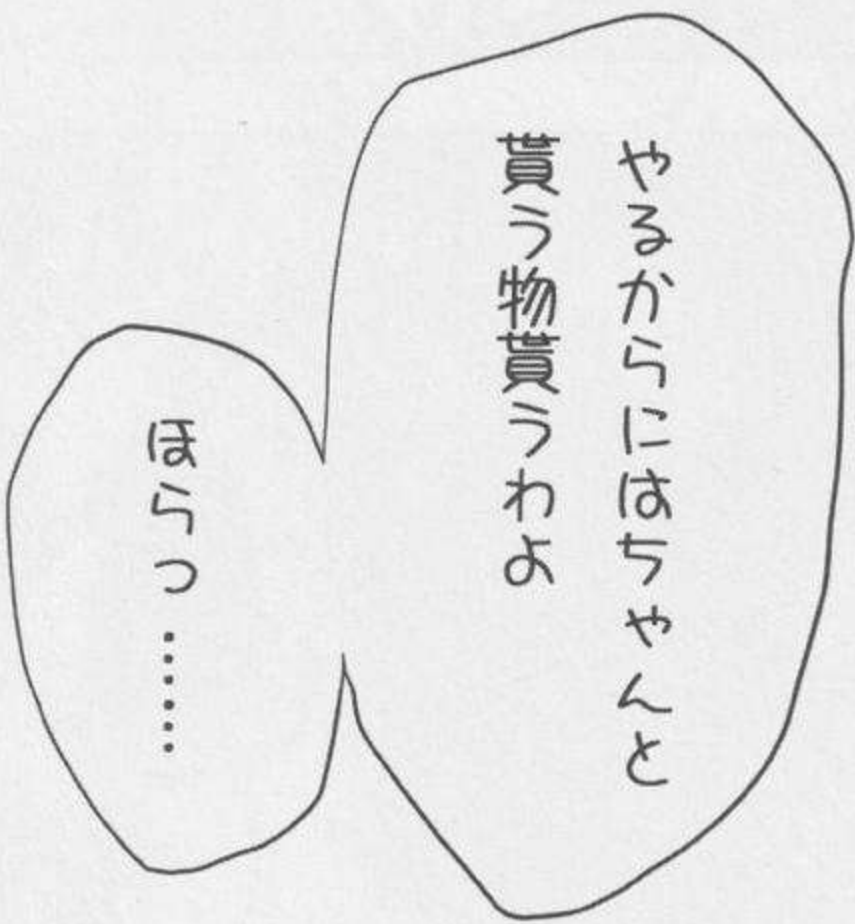 やるからにはちゃんと
貰う物貰うわよ
ほらっ……